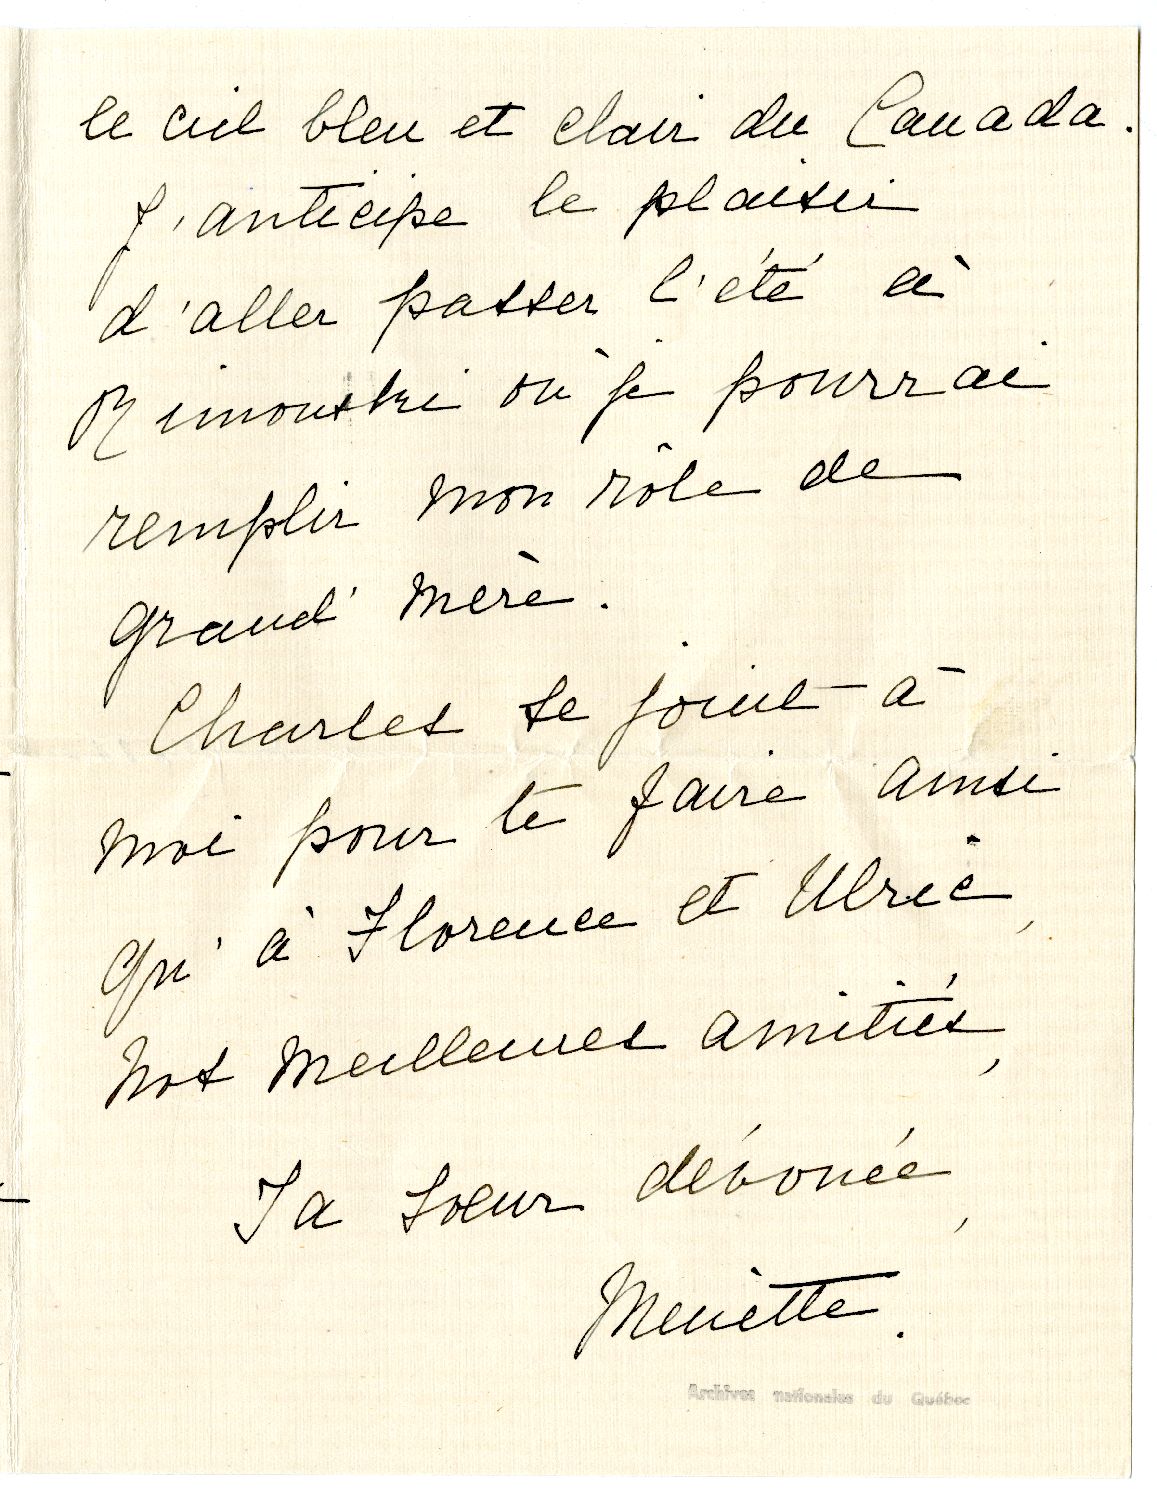 le ciel bleu et clair du Canada.
J'anticipe le plaisir
d'aller passer l'été à
Rimouski où je pourrai
remplir mon rôle de
grand'mère.
Charles se joint à
moi pour te faire ainsi
qu'à Florence et Ulric,
nos meilleures amitiés,
Ta soeur dévouée,
Henriette.
Archives nationales du Québec